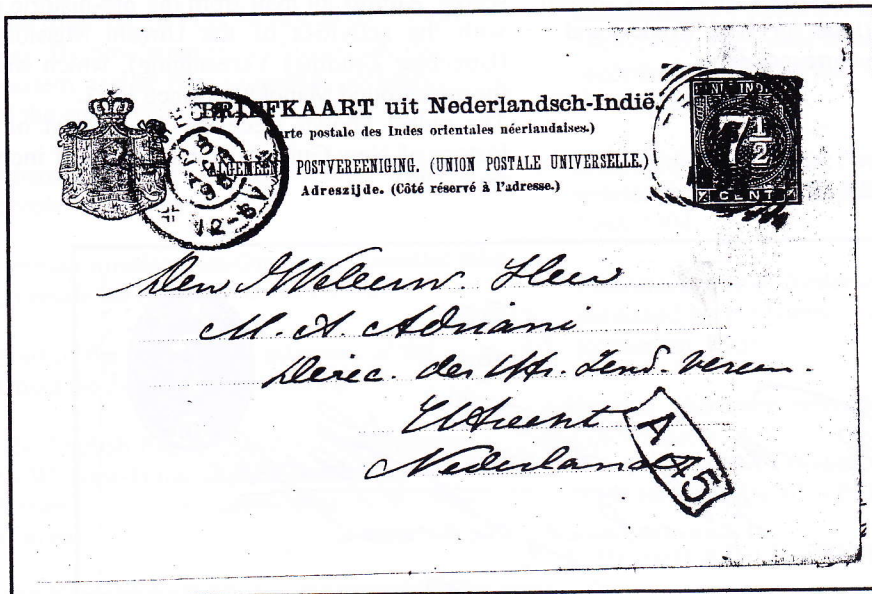 BRIEFKAART uit Nederlandsch-Indië.
(Carte postale des Indes orientales néerlandaises.)
ALGEMEENE POSTVEREENIGING. (UNION POSTALE UNIVERSELLE.)
Adreszijde. (Côté réservé à l'adresse.)
NED. INDIË
7 1/2
CENT
12-6V
Den Heer
M. A. Adriani
Direc. der Utr. Zend. Vereen.
Utrecht
Nederland
A 45